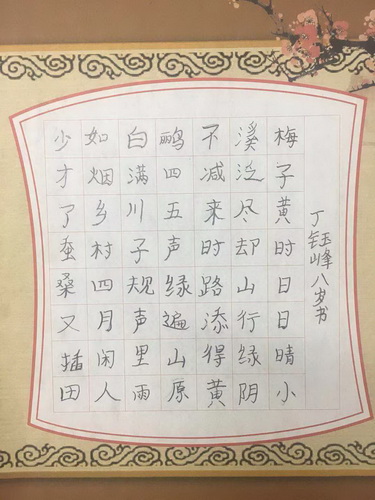 丁钰峰八岁书
梅子黄时日日晴小
溪泛尽却山行绿阴
不减来时路添得黄
鹂四五声绿遍山原
白满川子规声里雨
如烟乡村四月闲人
少才了蚕桑又插田